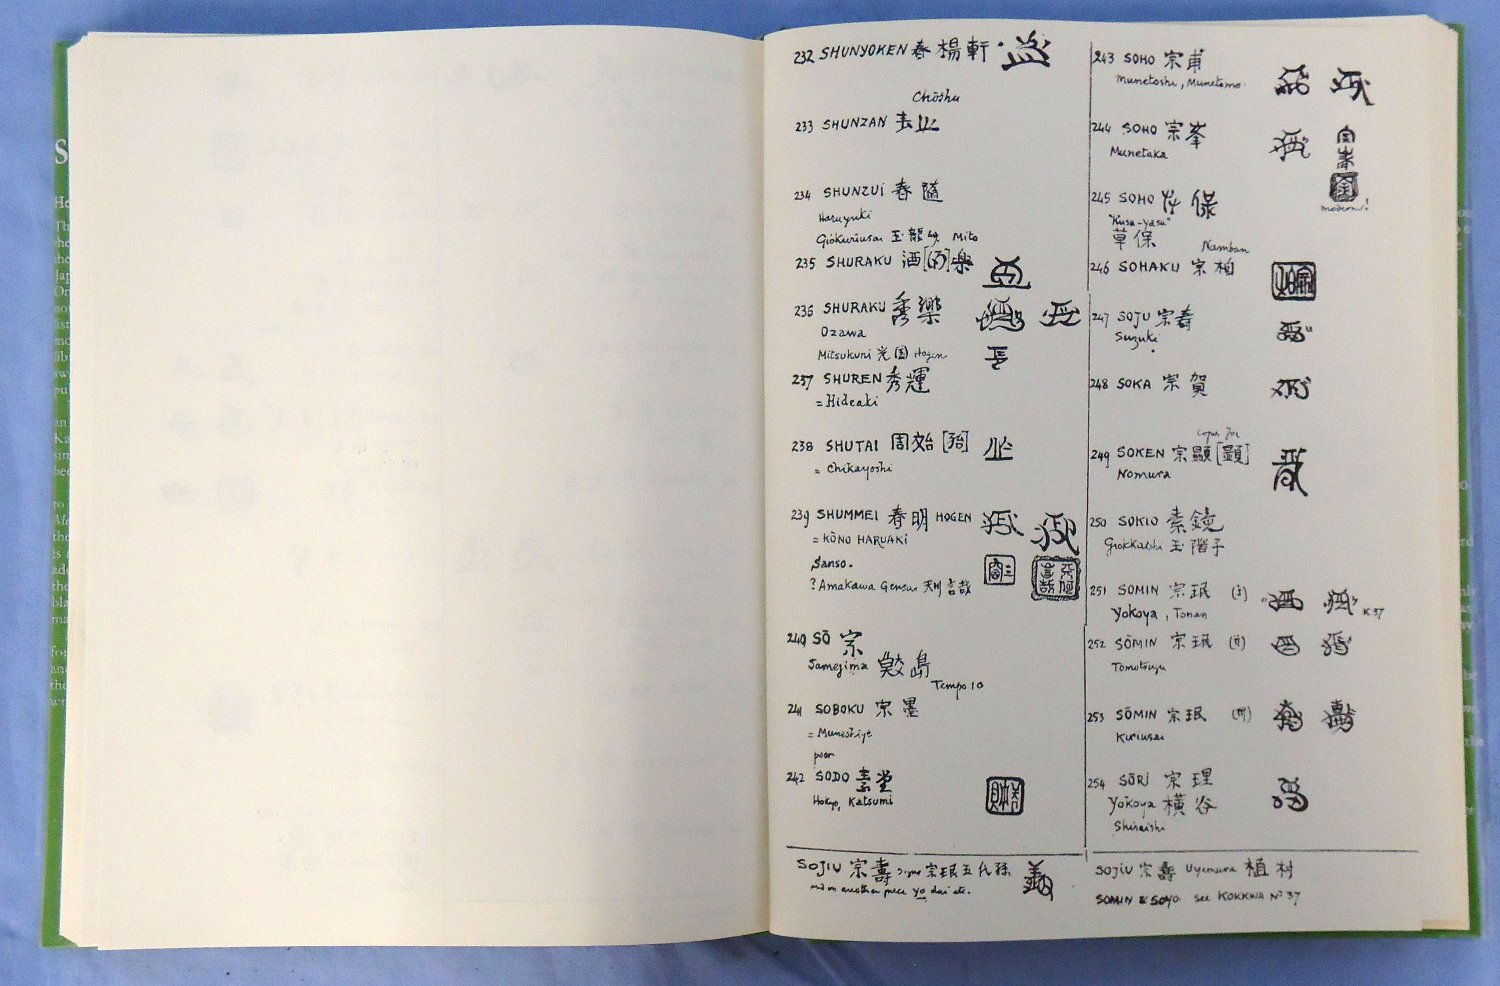 232 SHUNYOKEN 春楊軒
Chōshu
233 SHUNZAN
234 SHUNZUI 春随
Haruyuki
Giokuriusai 玉龍 Mito
235 SHURAKU 酒 楽
236 SHURAKU 秀樂
Ozawa
Mitsukuni 光国 Hogen
237 SHUREN 秀輝
= Hideaki
238 SHUTAI 周
= Chikayoshi
239 SHUMMEI 春明 HOGEN
= KŌNO HARUAKI
Sanso.
? Amakawa Gensui
240 SŌ 宗
Samejima 鮫島
Tempo 10
241 SOBOKU 宗墨
= Muneshige
poor
242 SODO 素堂
Hokyo, Katsumi
SOJIU 宗壽 signs 宗珉五代孫
on another piece yo dai etc.
243 SOHO 宗甫
Munetoshi, Munetomo
244 SOHO 宗峯
Munetaka
modern!
245 SOHO
"Kusa-yasu"
草保
Namban
246 SOHAKU 宗柏
247 SOJU 宗寿
Suzuki
248 SOKA 宗賀
249 SOKEN 宗顕[顯]
Nomura
250 SOKIO 素鏡
251 SOMIN 宗珉 (I)
Yokoya, Tonan
K 37
252 SŌMIN 宗珉 (II)
Tomotsugu
253 SŌMIN 宗珉 (III)
Kuriusai
254 SŌRI 宗理
Yokoya 横谷
Shiraishi
SOJIU 宗壽 Uyemura 植村
SOMIN & SOYO see KOKKWA No 37